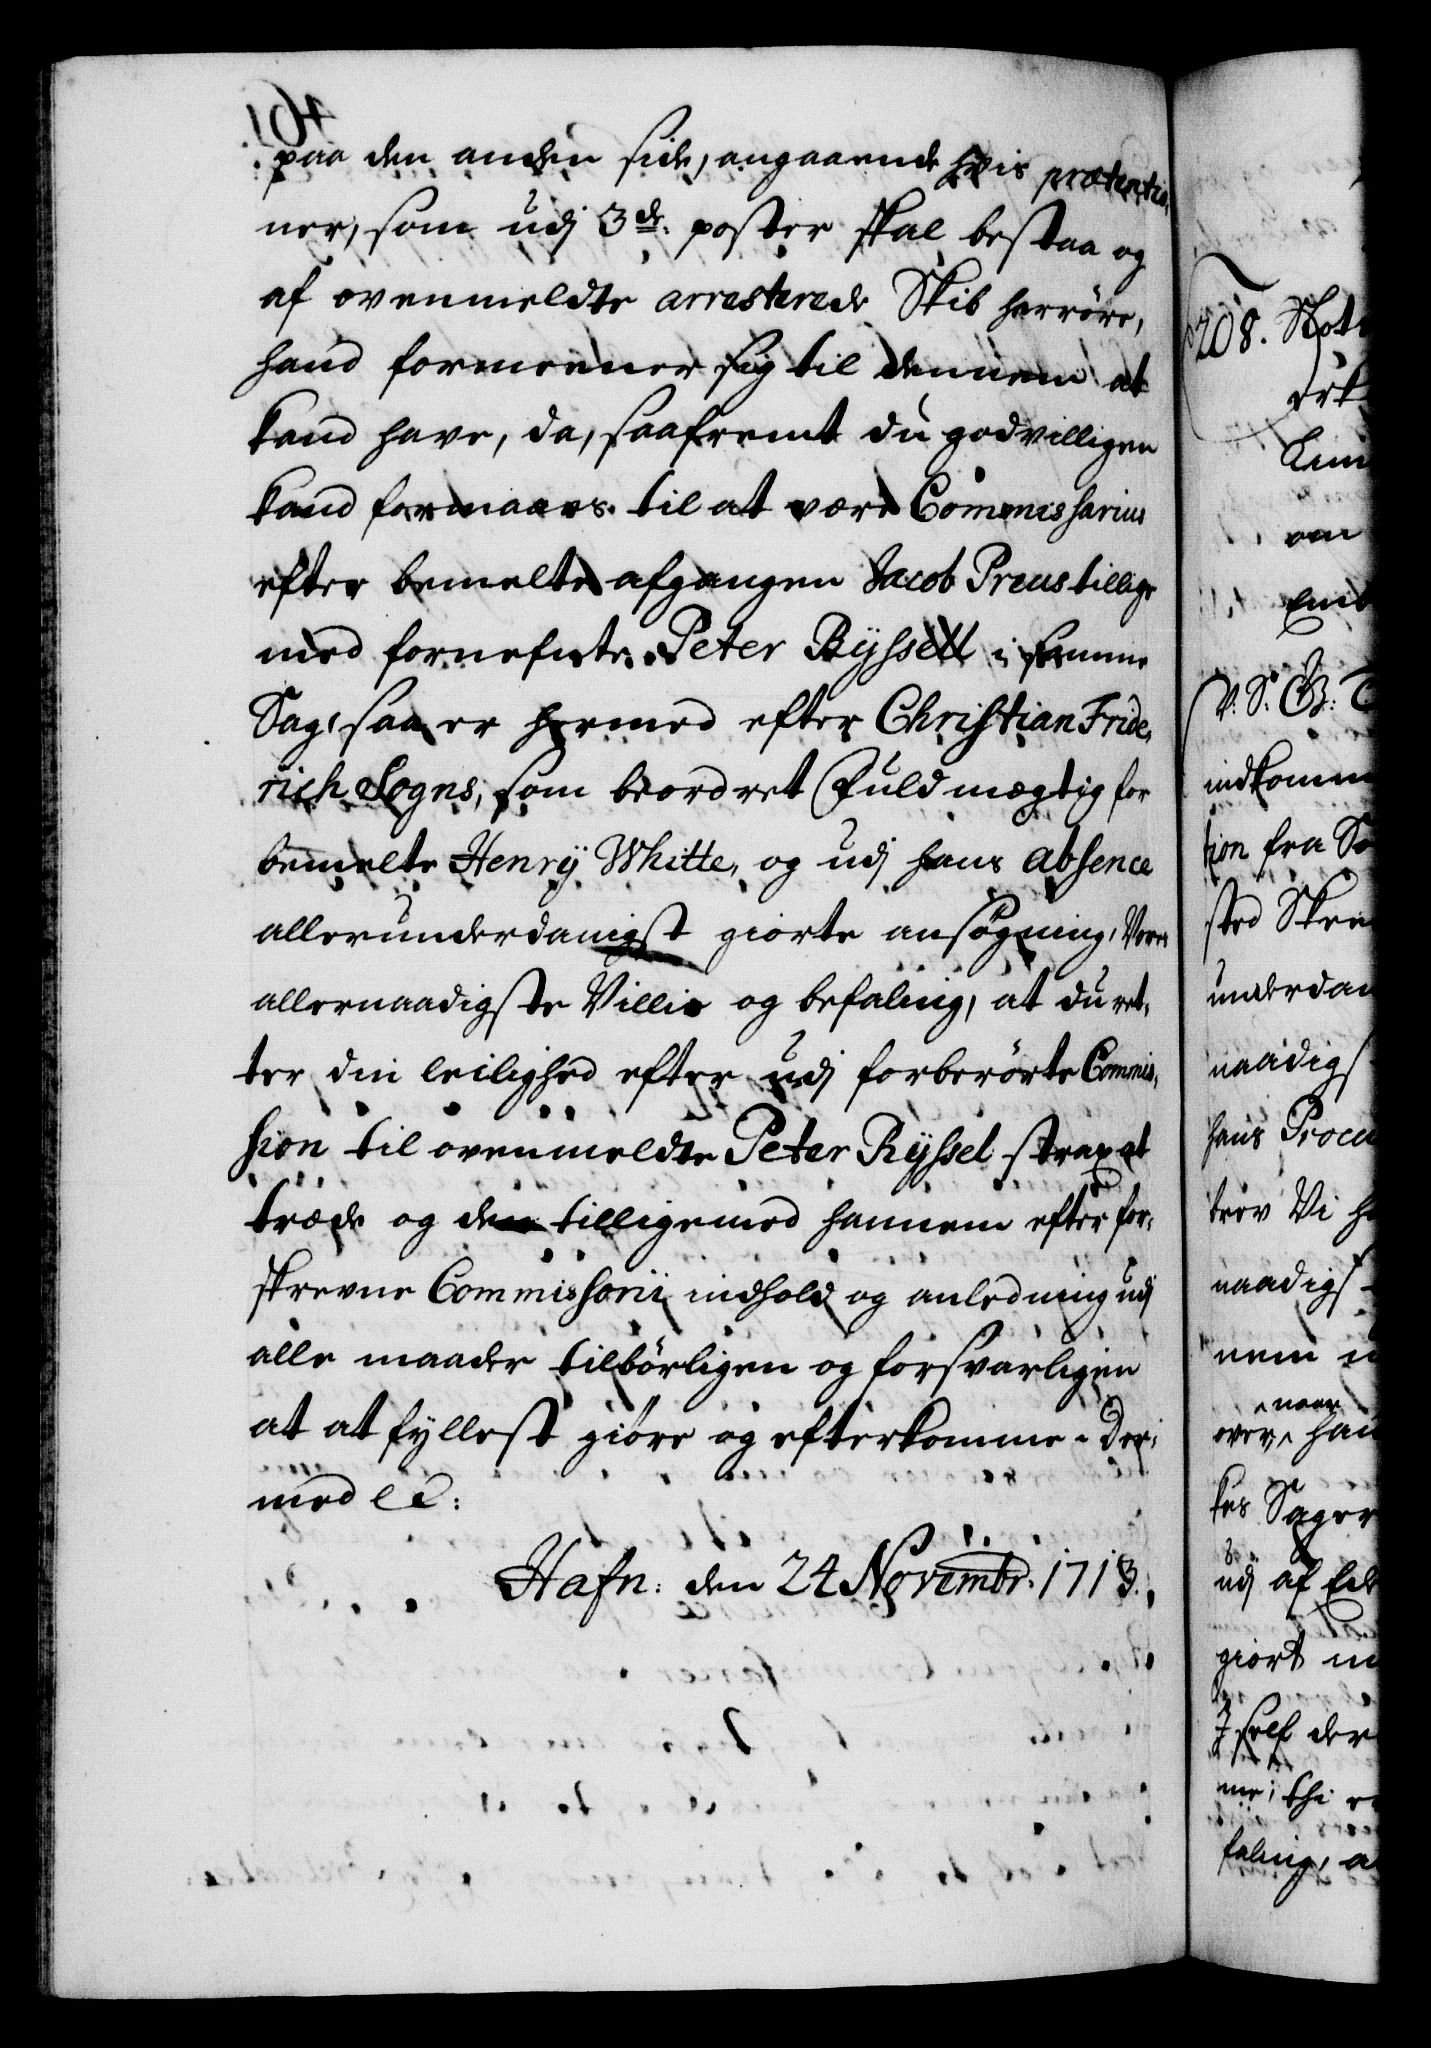 paa den anden side, angaaende hvis prætentio,
ner, som udj 3de: poster skal bestaa og
af ovenmeldte arresterede Skib herröre,
hand formeener sig til dennem at
kand have, da, saafremt du godvilligen
kand formaaes til at være Commissarius
efter bemelte afgangen Jacob Preus tillige
med fornefnte Peter Ryssell i samme
Sag, saa er hermed efter Christian Fride,
rich Sogns, som beordret Fuldmægtig for
bemelte Henrÿ Whitte, og udj hans absence
allerunderdanigst giorte ansøgning, Vores
allernaadigste Villie og befaling, at du ret,
ter din leilighed efter udj forberörte Commis,
sion til ovenmeldte Peter Ryssel strax at
træde og den tilligemed hannem efter for,
skrevne Commissorii indhold og anledning udj
alle maader tilbörligen og forsvarligen
at at fyllest giöre og efterkomme. Der,
med ec:
Hafn: den 24 Novembr: 1713.
208.
V. S. G:
indkomm
tion fra
sted
underdan
naadigs
hans Procu
trov Vi
naadigs
nem
naar
over
kes Sager
udj af
giort
self der
me; thi
faling, a